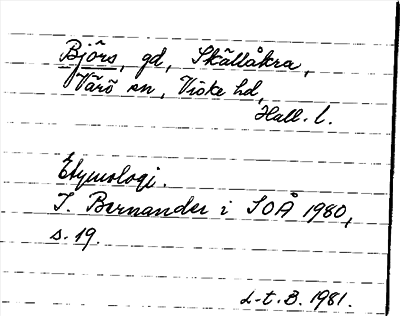 Björs, gd, Skällåkra,
Värö sn, Viske hd,
Hall. l.
Etymologi.
I. Bernander i SOÅ 1980,
s. 19.
L.t.B. 1981.